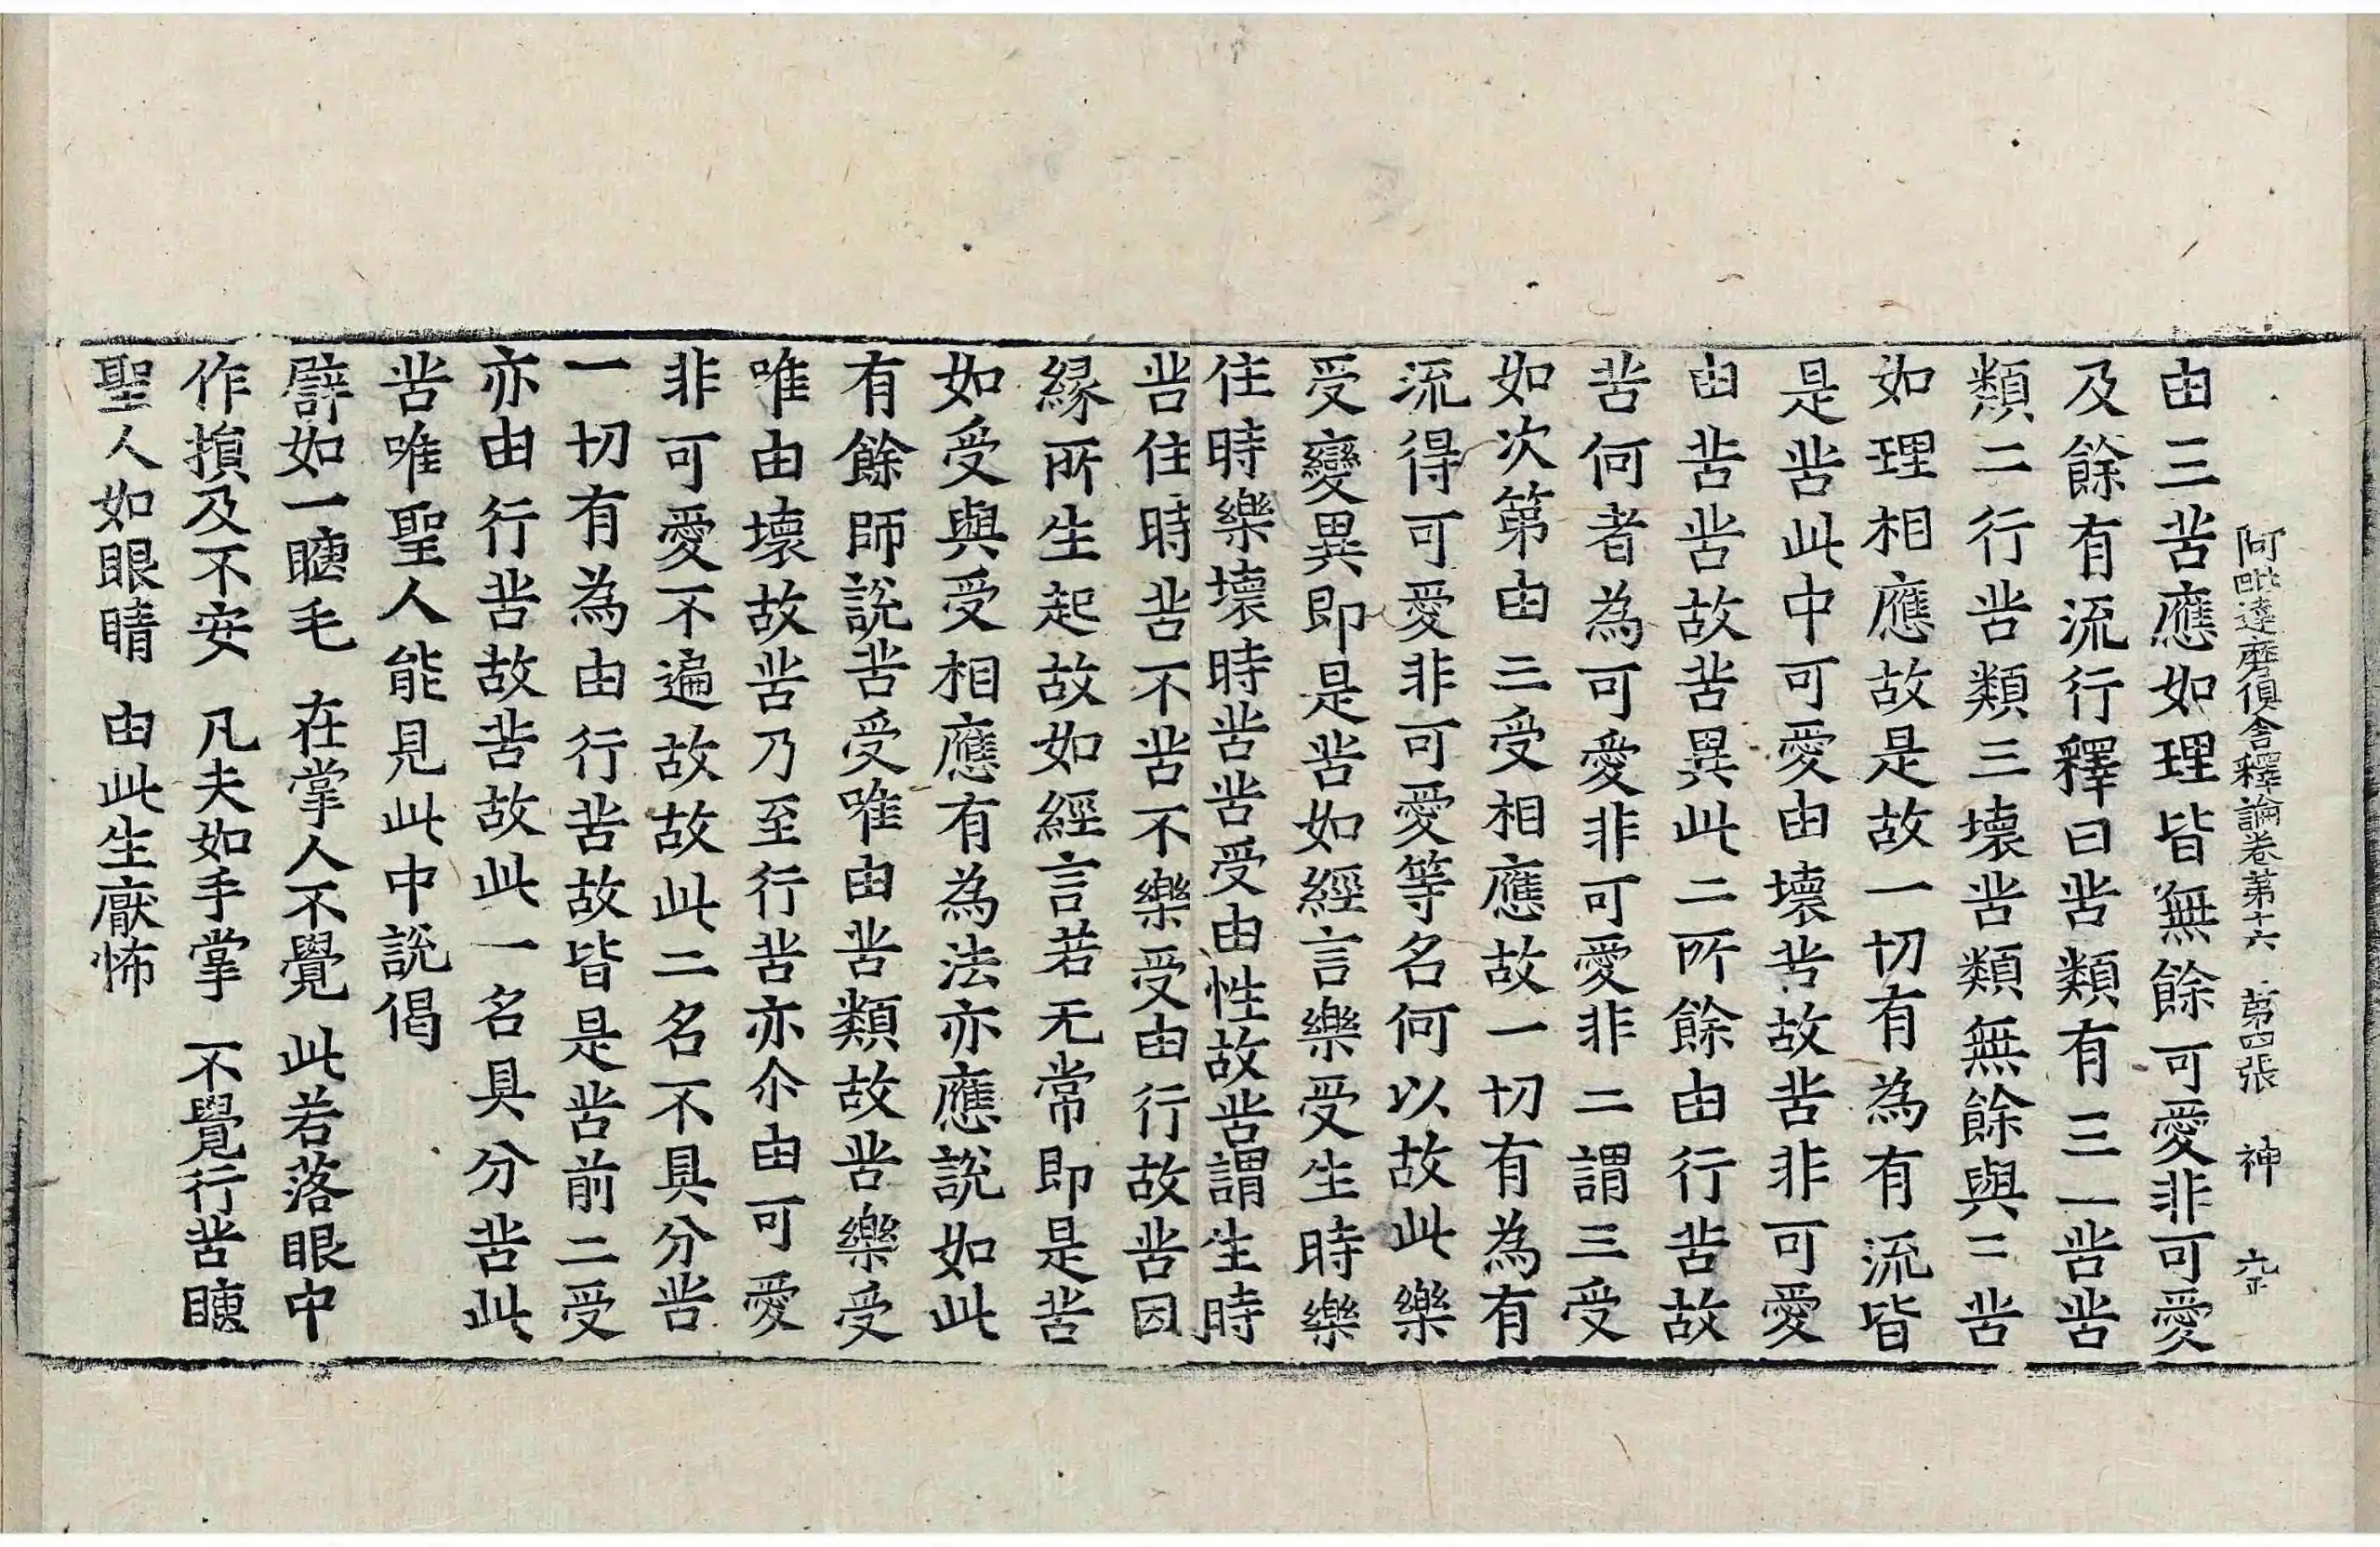 阿毗達磨俱舍釋論卷第十六 第四張 神
由三苦應如理皆無餘可愛非可愛
及餘有流行釋曰苦類有三一苦苦
類二行苦類三壞苦類無餘與三苦
如理相應故是故一切有為有流皆
是苦此中可愛由壞苦故苦非可愛
由苦苦故苦異此二所餘由行苦故
苦何者為可愛非可愛非二謂三受
如次第由三受相應故一切有為有
流得可愛非可愛等名何以故此樂
受變異即是苦如經言樂受生時樂
住時樂壞時苦苦受由性故苦謂生時
苦住時苦不苦不樂受由行故苦因
緣所生起故如經言若无常即是苦
如受與受相應有為法亦應說如此
有餘師說苦受唯由苦類故苦樂受
唯由壞故苦乃至行苦亦尒由可愛
非可愛不遍故故此二名不具分苦
一切有為由行苦故皆是苦前二受
亦由行苦故苦故此一名具分苦此
苦唯聖人能見此中說偈
譬如一𥇒毛 在掌人不覺 此若落眼中
作損及不安 凡夫如手掌 不覺行苦𥇒
聖人如眼睛 由此生厭怖